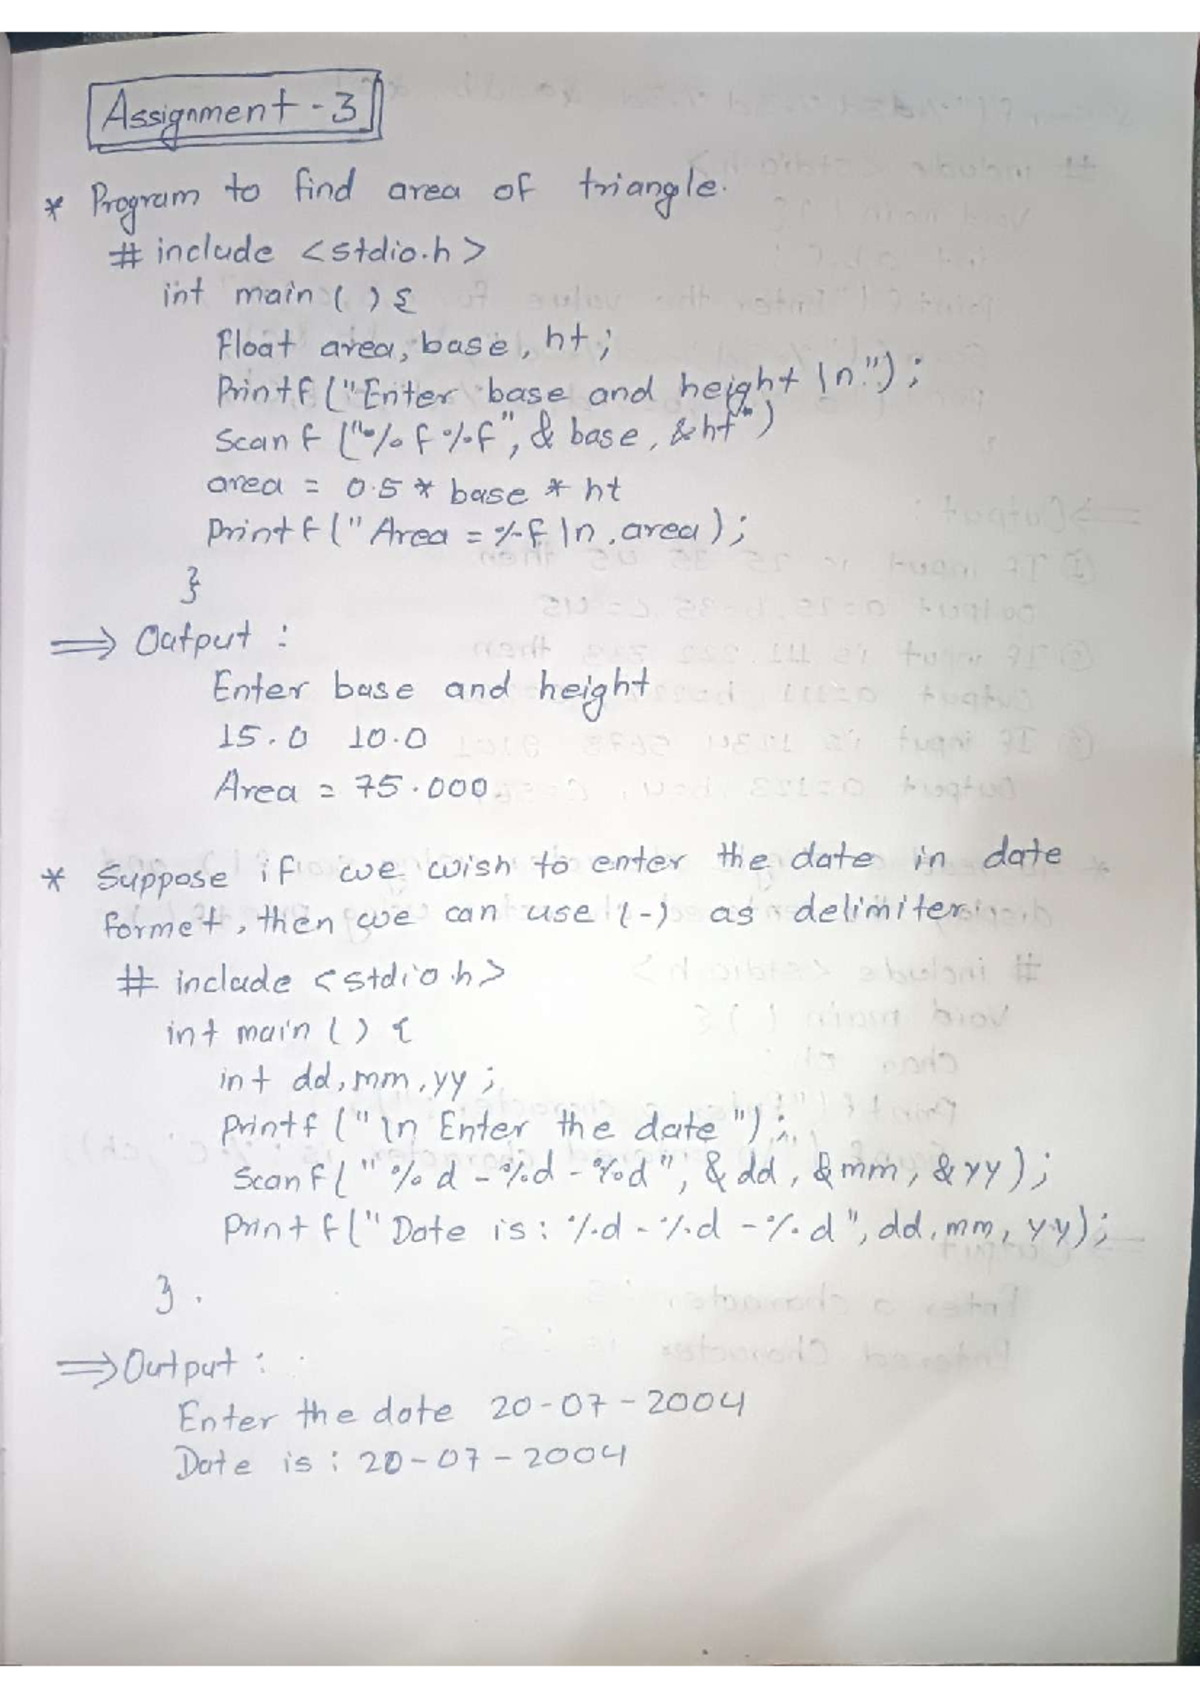 Assignment - 3
* Program to find area of triangle.
# include <stdio.h>
int main ( ) {
Float area, base, ht;
Printf ("Enter base and height \n");
Scanf ("%f %f", & base, &ht")
area = 0.5 * base * ht
Printf (" Area = %f \n, area);
}
⟹ Output :
Enter base and height
15.0 10.0
Area = 75.000
* Suppose if we wish to enter the date in date
formet, then we can use (-) as delimiter
# include <stdio.h>
int main () {
int dd, mm, yy;
Printf (" \n Enter the date ");
Scanf (" %d - %d - %d ", & dd, & mm, & yy);
Printf (" Date is : %d - %d - %d ", dd, mm, yy);
}.
⟹ Output :
Enter the date 20-07-2004
Date is : 20-07-2004